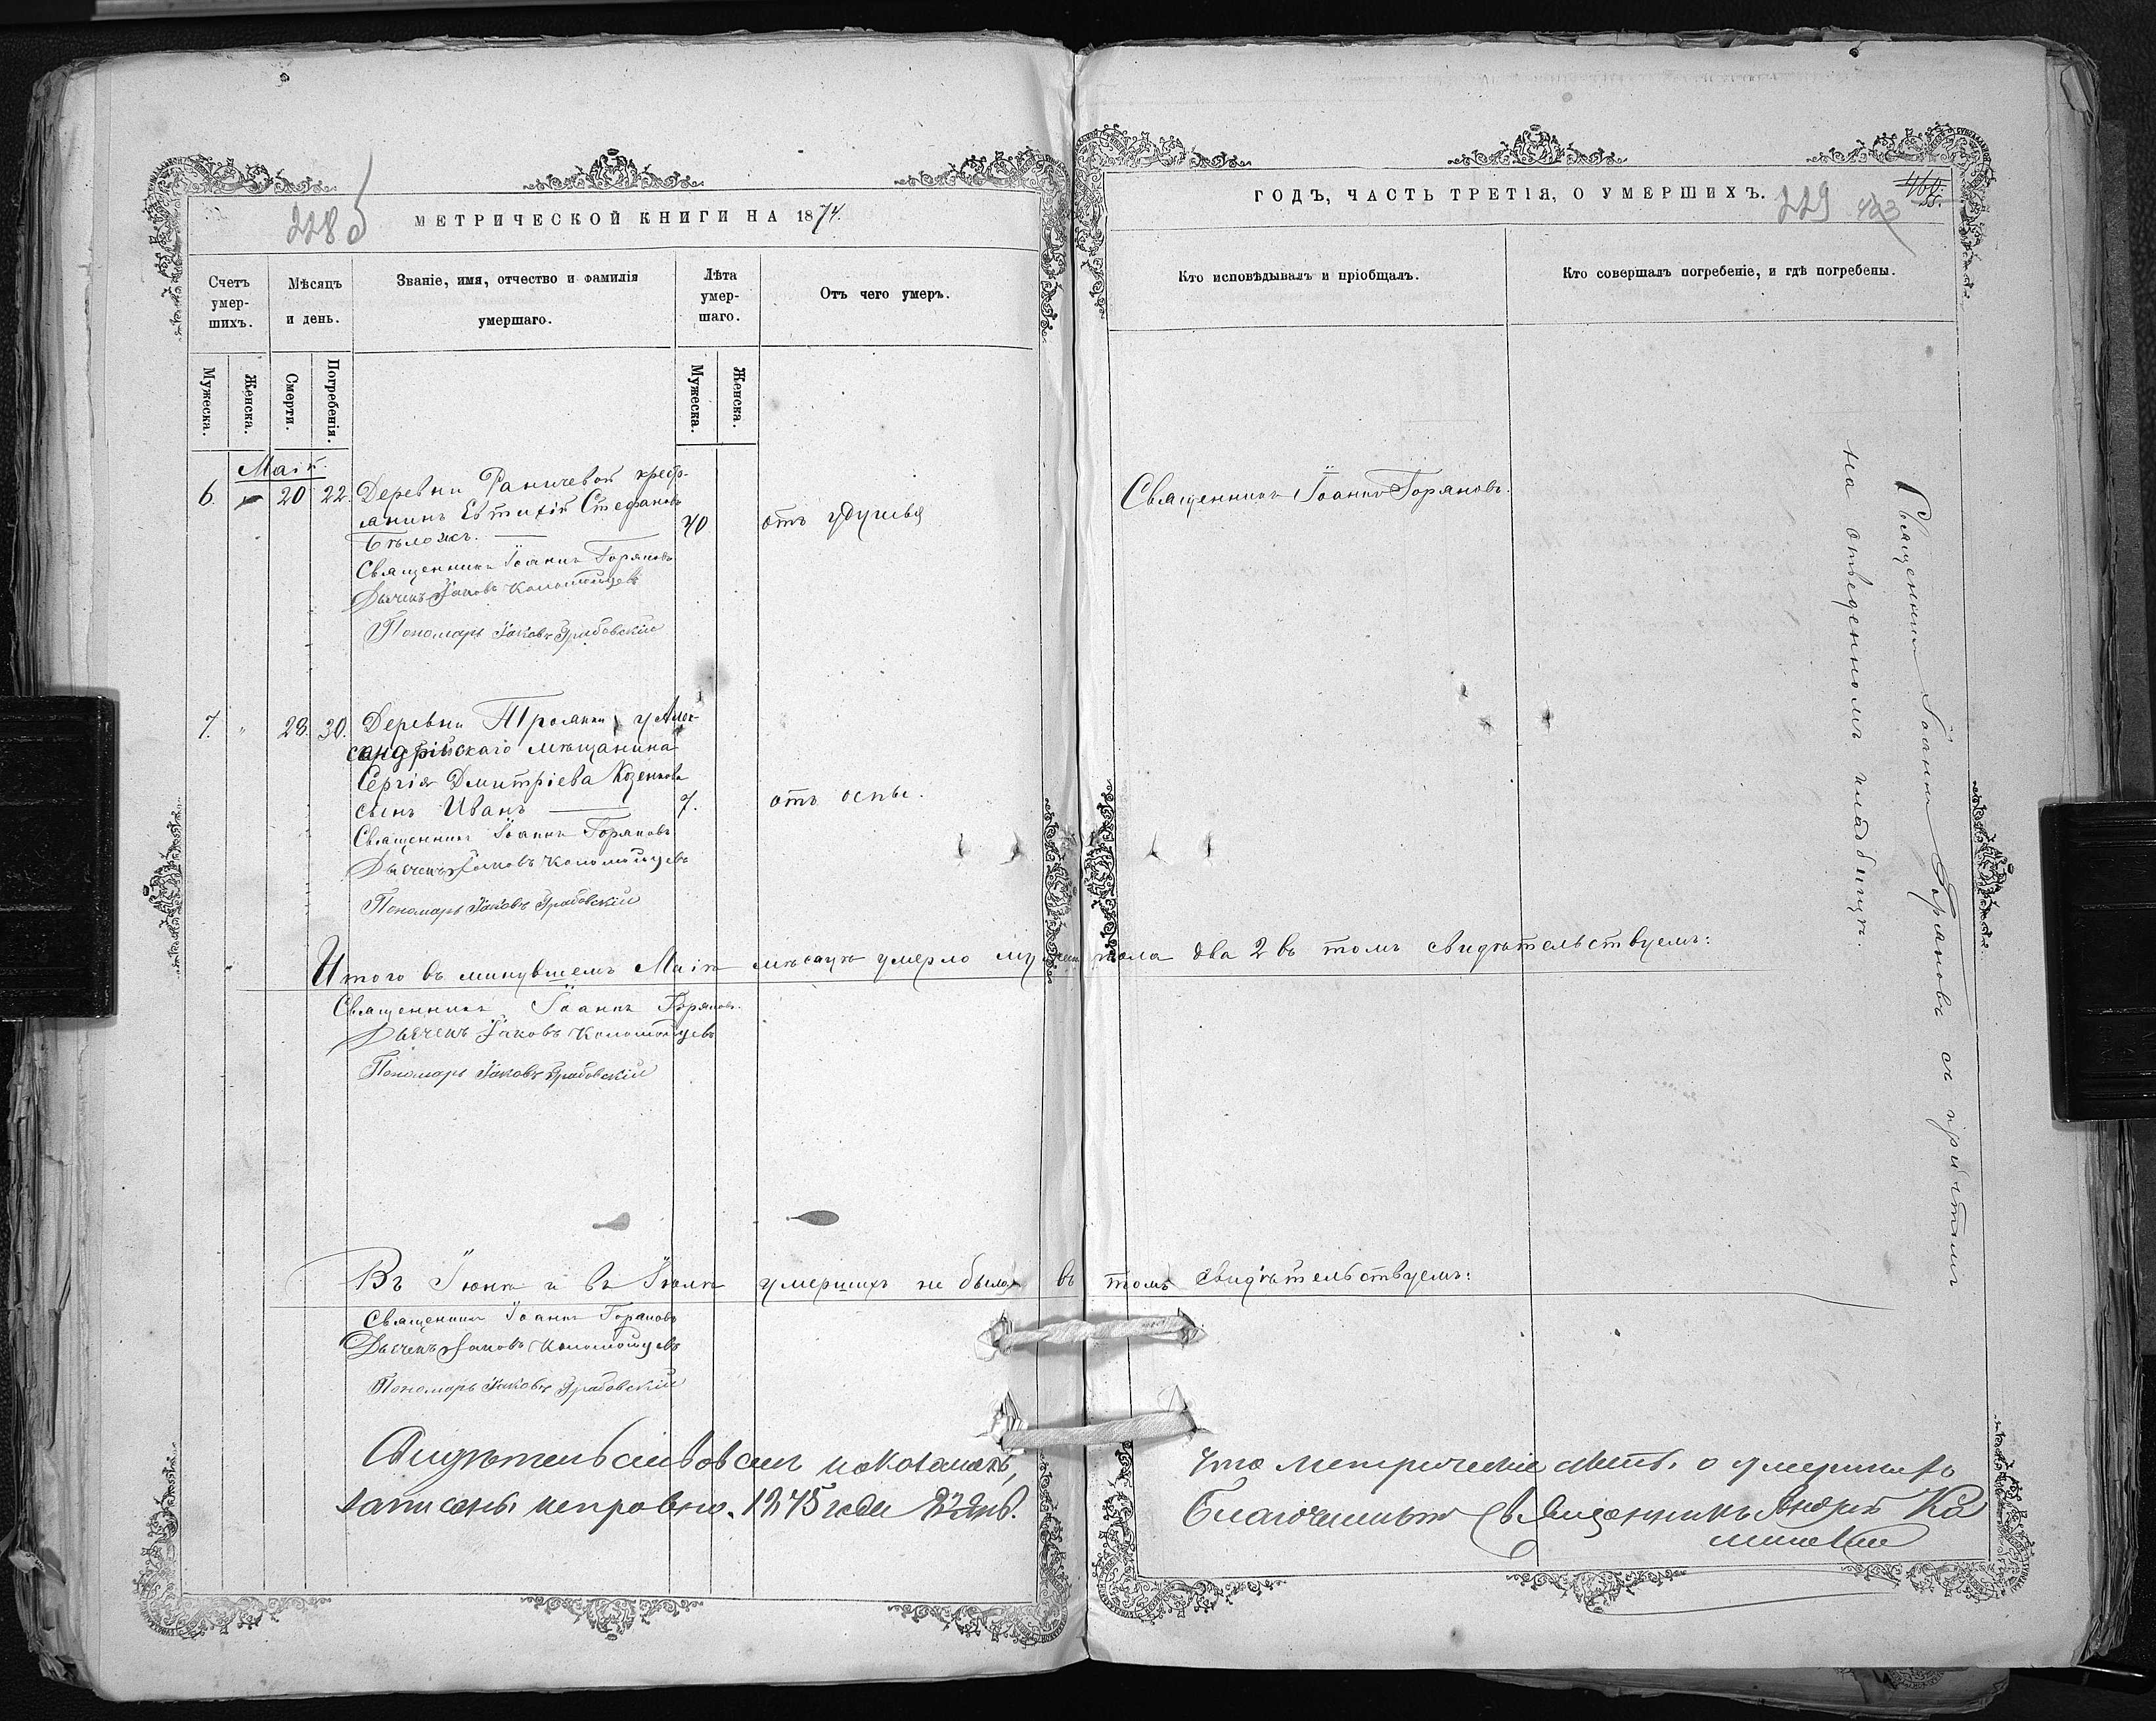 228
МЕТРИЧЕСКОЙ КНИГИ НА 1874.
Счетъ умер-шихъ.
Мѣсяцъ и день.
Званіе, имя, отчество и фамилія умершаго.
Лѣта умер-шаго.
Отъ чего умеръ.
Мужеска.
Женска.
Смерти.
Погребенія.
Мужеска.
Женска.
Маія
6. 20 22. Деревни Раничевой кресть-
янинъ Евтихій Стефановъ
Бѣложъ. 40 отъ удушья
Священникъ Іоаннъ Горяновъ
Дьячекъ Іаковъ Коломойцевъ
Пономарь Іаковъ Грабовскій
7. " 28. 30. Деревни Троянки, у Алек-
сандрійскаго мѣщанина
Сергія Дмитріева Козенкова
сынъ Иванъ 7. отъ оспы.
Священникъ Іоаннъ Горяновъ
Дьячекъ Іаковъ Коломойцевъ
Пономарь Іаковъ Грабовскій
Итого въ минувшемъ Маіѣ мѣсяцѣ умерло муж. пола два 2 въ томъ свидѣтельствуемъ:
Священникъ Іоаннъ Горяновъ.
Дьячекъ Іаковъ Коломойцевъ
Пономарь Іаковъ Грабовскій
Въ Іюнѣ и въ Іюлѣ умершихъ не было въ томъ свидѣтельствуемъ:
Священникъ Іоаннъ Горяновъ
Дьячекъ Іаковъ Коломойцевъ
Пономарь Іаковъ Грабовскій
что метрическіе о умершихъ
записаны исправно. 1875 года
Благочинный Священникъ Андрей
ГОДЪ, ЧАСТЬ ТРЕТІЯ, О УМЕРШИХЪ.
229
Кто исповѣдывалъ и пріобщалъ.
Кто совершалъ погребеніе, и гдѣ погребены.
Священникъ Іоаннъ Горяновъ.
Священникъ Іоаннъ Горяновъ съ причтомъ
на отведенномъ кладбищѣ.